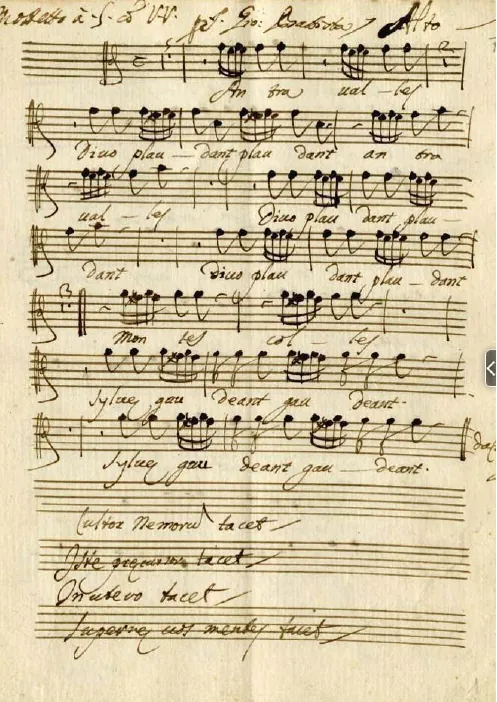 Motetto à. 5. Co VV. pr. S. Gio. Battista Alto
An tra ual - les
Diuo plau - dant plau dant an tra
ual - les Diuo plau dant plau -
dant Diuo plau dant plau - dant
Mon tes col - les
Syluę gau deant gau deant.
Syluę gau deant gau - deant.
Cultor Nemorū tacet
Iste tacet
tacet
Supernę uos mentes tacet